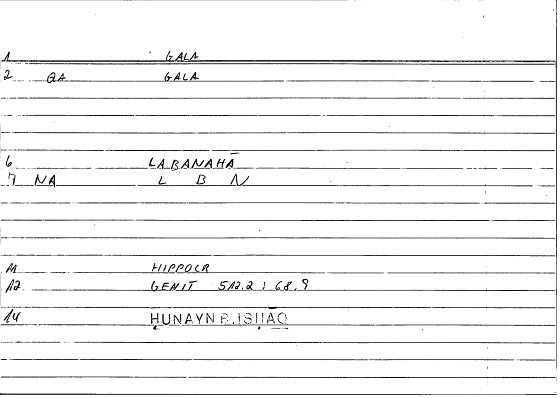 1 GALA
2 QA GALA
6 LABANAHĀ
7 NA L B N
11 HIPPOCR
12 GENIT 512.2 : 68.9
14 ḤUNAYN B. ISḤĀQ